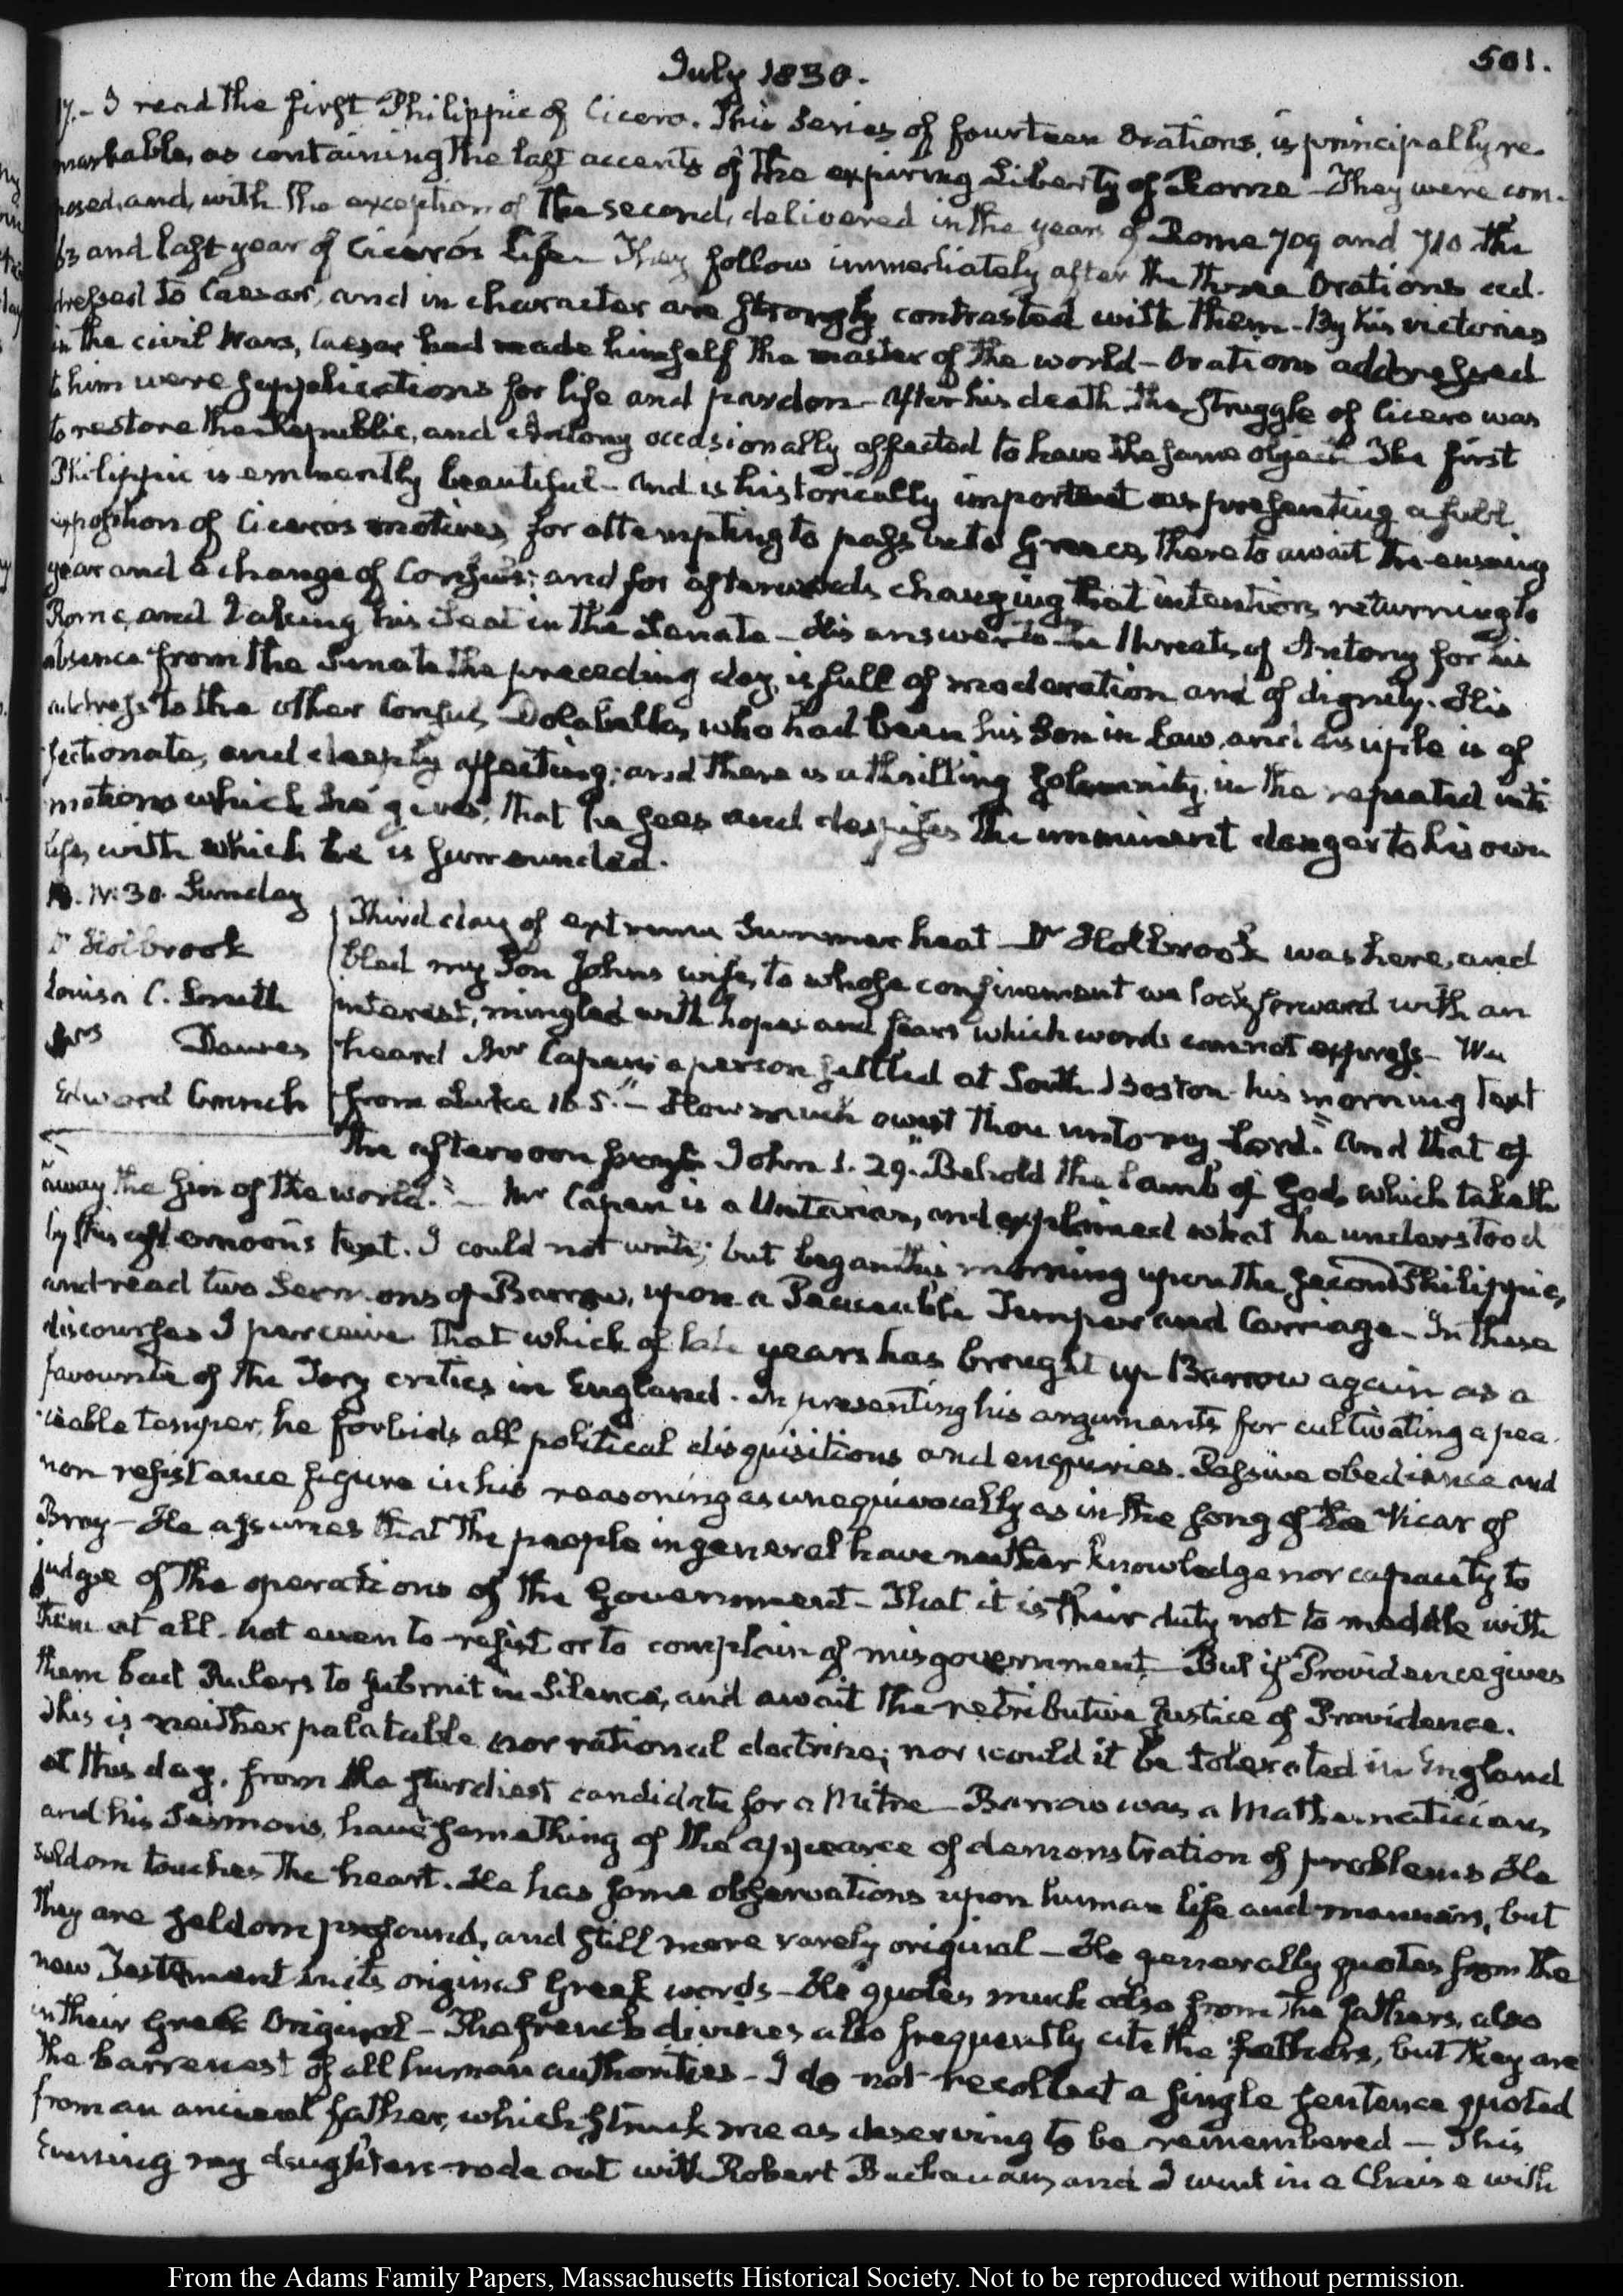 July 1830.
501.
17.- I read the first Philippic of Cicero. This Series of fourteen Orations, is principally re-
markable, as containing the last accents of the expiring Liberty of Rome - They were com-
posed, and, with the exception of the second, delivered in the years of Rome 709 and 710 the
63 and last year of Cicero's Life - They follow immediately after the three Orations ad-
dressed to Caesar, and in character are strongly contrasted with them - By his victories
in the civil Wars, Caesar had made himself the master of the world - Orations addressed
to him were supplications for life and pardon - After his death, the struggle of Cicero was
to restore the Republic, and Antony occasionally affected to have the same object. The first
Philippic is eminently beautiful - And is historically important as presenting a full
exposition of Cicero's motives, for attempting to pass into Greece, there to await the ensuing
year and a change of Consuls; and for afterwards, changing that intention, returning to
Rome, and taking his seat in the Senate - His answer to the threats, of Antony for his
absence from the Senate the preceding day, is full of moderation and of dignity. His
address to the other Consul, Dolabella, who had been his Son in Law, and disciple is af
fectionate, and deeply affecting; and there is a thrilling solemnity, in the repeated inti
mations which he gives, that he sees and despises the imminent danger to his own
life, with which he is surrounded.
18. IV:30. Sunday
Dr Holbrook
Louisa C. Smith
Mrs Dawes
Edward Cranch
Third day of extreme Summer heat - Dr Holbrook was here, and
bled my Son John's wife, to whose confinement we look forward with an
interest, mingled with hopes and fears which words cannot express - We
heard Mr Capen; a person settled at South Boston - his morning text
from Luke 16. 5. "- How much owest thou unto my Lord." And that of
the afternoon from John 1. 29. "Behold the Lamb of God, which taketh
away the sin of the world." - Mr Capen is a Unitarian, and explained what he understood
by this afternoon's text. I could not write; but began this morning upon the second Philippic,
and read two Sermons of Barrow, upon a Peaceable Temper and Carriage - In these
discourses I perceive that which of late years has brought up Barrow again as a
favourite of the Tory critics in England. In presenting his arguments for cultivating a pea
ceable temper, he forbids all political disquisitions and enquiries. Passive obedience and
non resistance figure in his reasoning as unequivocally as in the song of the Vicar of
Bray - He assumes that the people in general have neither knowledge nor capacity to
judge of the operations of the Government - That it is their duty not to meddle with
them at all - not even to resist or to complain of misgovernment - But if Providence gives
them bad Rulers to submit in silence, and await the retributive justice of Providence.
This is neither palatable nor rational doctrine; nor would it be tolerated in England
at this day, from the sturdiest candidate for a Mitre - Barrow was a Mathematician,
and his Sermons, have something of the appearce of demonstration of problems He
seldom touches the heart. He has some observations upon human life and manners, but
they are seldom profound, and still more rarely original - He generally quotes from the
new Testament in its original Greek words - He quotes much also from the fathers, also
in their Greek Original - The French divines also frequently cite the fathers, but they are
the barrenest of all human authorities - I do not recollect a single sentence quoted
from an ancient father, which struck me as deserving to be remembered - This
Evening my daughters rode out with Robert Buchanan, and I went in a Chaise with
From the Adams Family Papers, Massachusetts Historical Society. Not to be reproduced without permission.